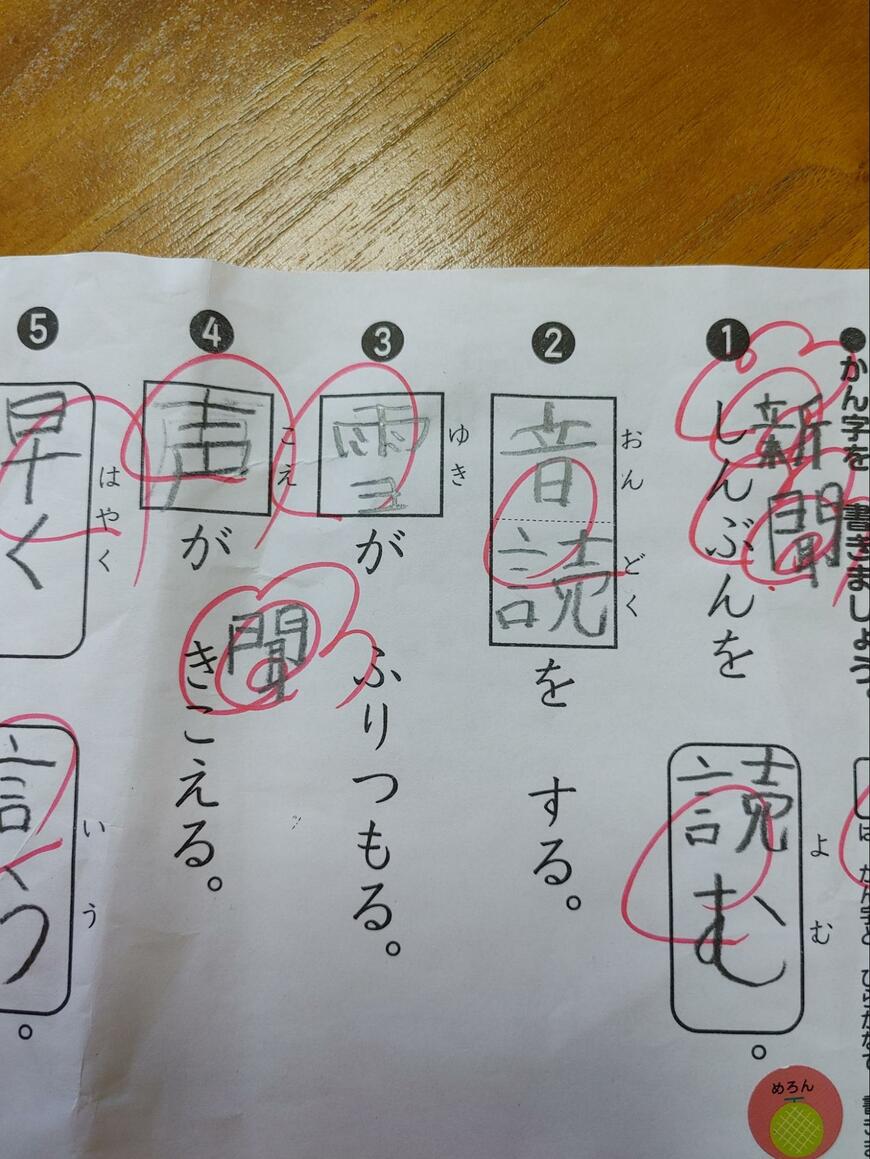 ●かん字を 書きましょう。
は かん字と ひらがなで 書き
❶
新聞
しんぶんを
読む
よむ
。
❷
音読
おんどく
を する。
❸
雪
ゆき
が ふりつもる。
❹
声
こえ
が
聞
きこえる。
❺
早く
はやく
言う
いう
。
めろん